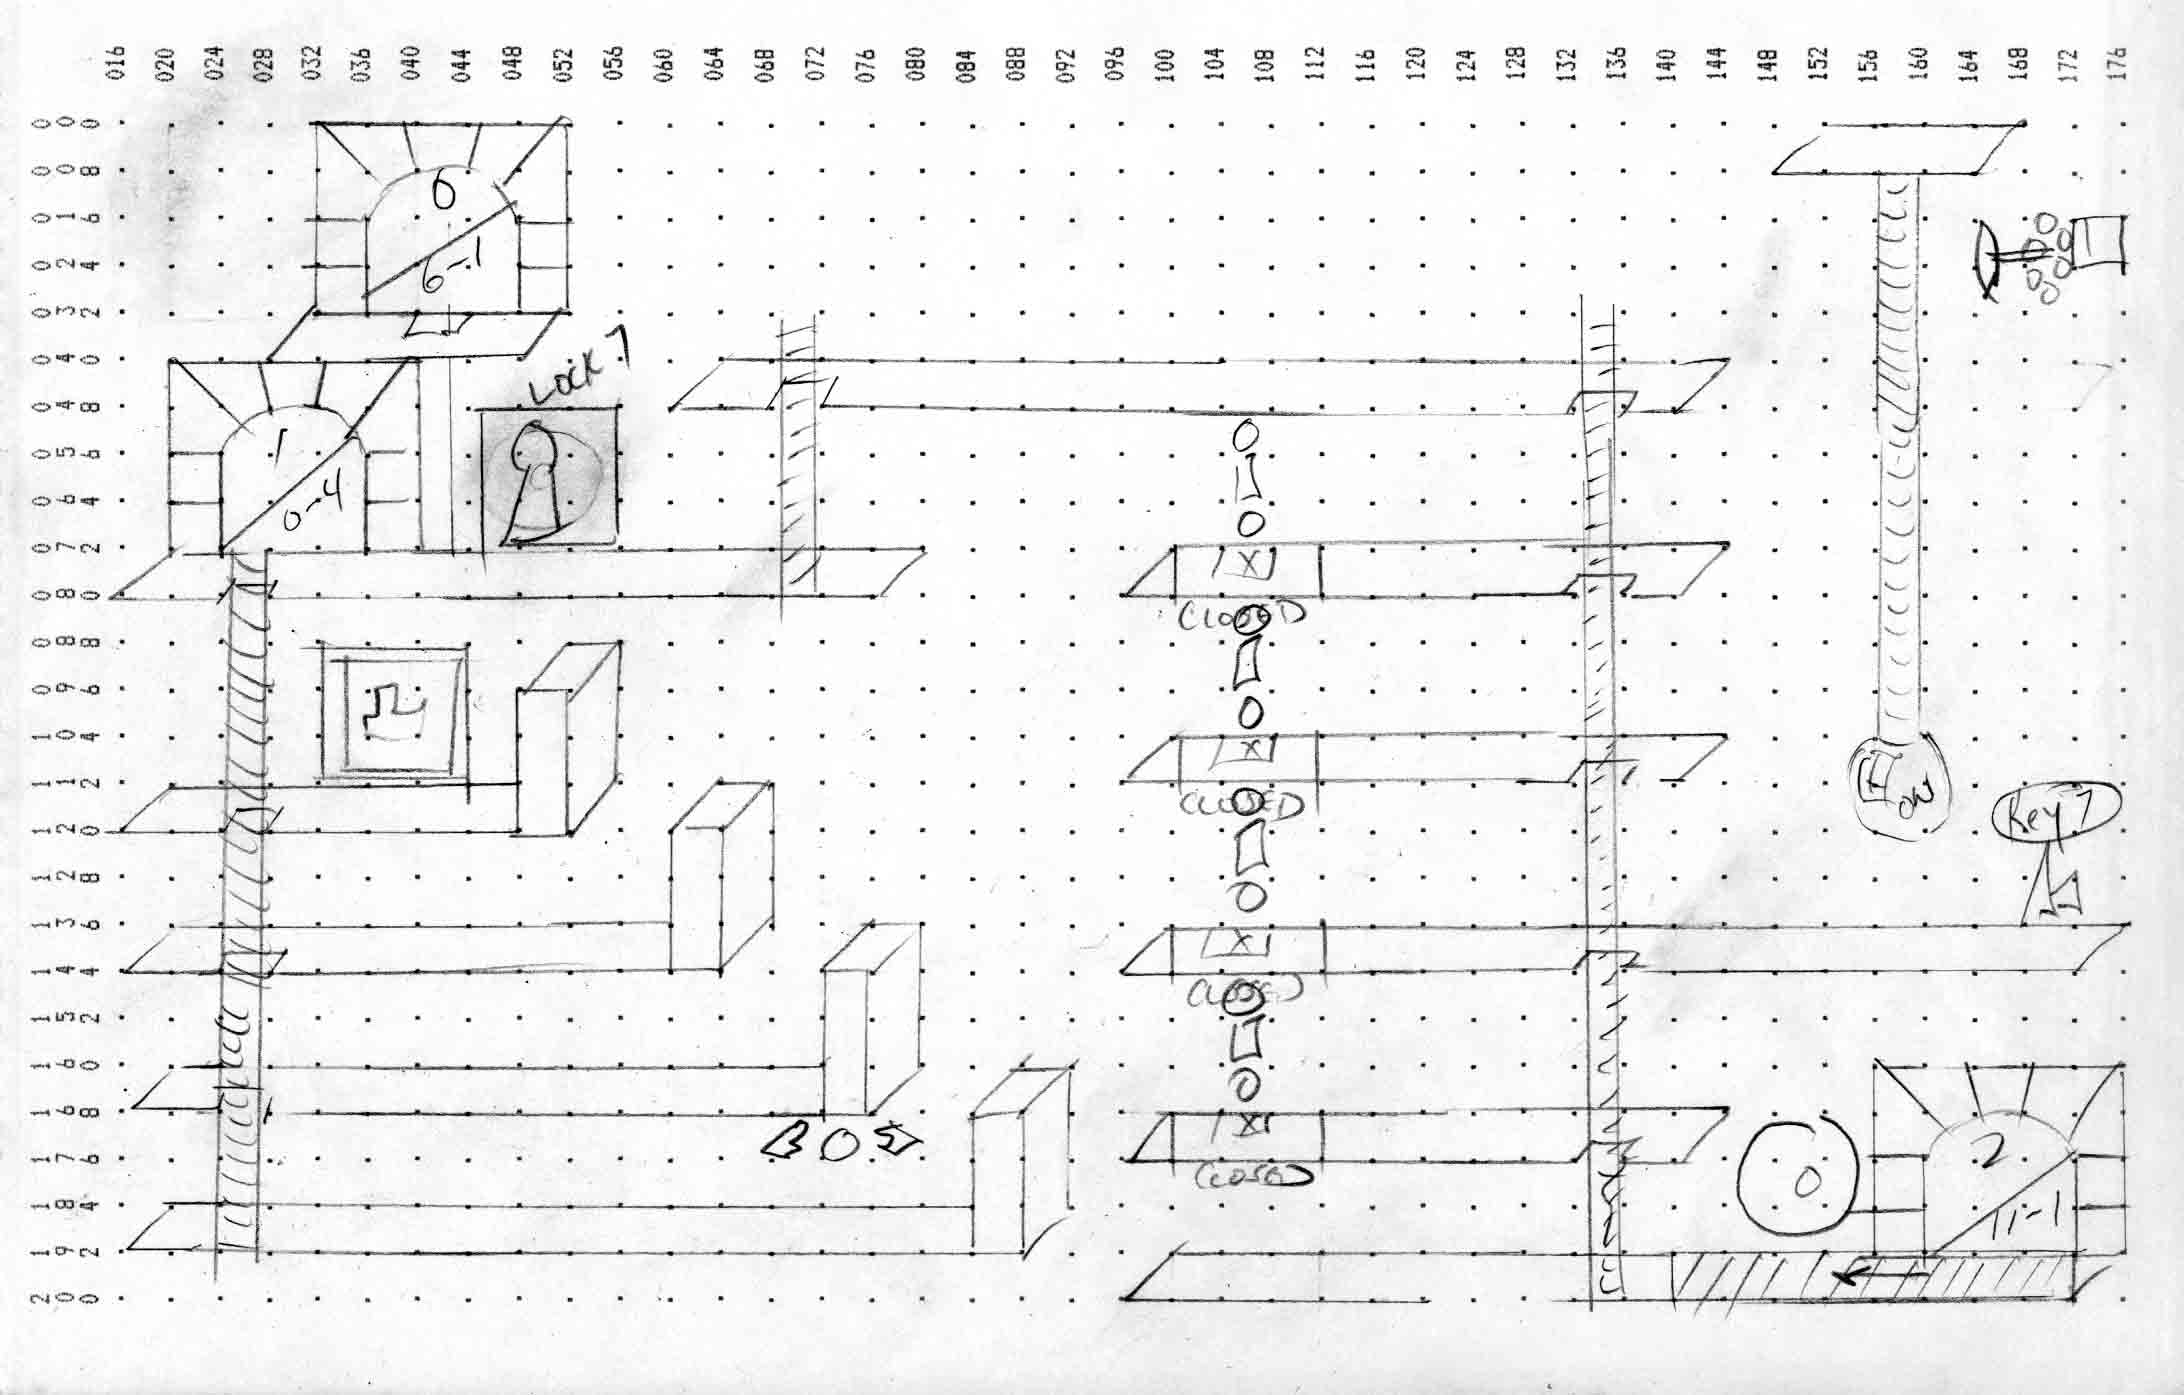 016 020 024 028 032 036 040 044 048 052 056 060 064 068 072 076 080 084 088 092 096 100 104 108 112 116 120 124 128 132 136 140 144 148 152 156 160 164 168 172 176
000
008
016
024
032
040
048
056
064
072
080
088
096
104
112
120
128
136
144
152
160
168
176
184
192
200
0
6-1
LOCK 7
1
0-4
CLOSED
CLOSED
ON
Key 7
CLOSED
CLOSED
0
2
11-1